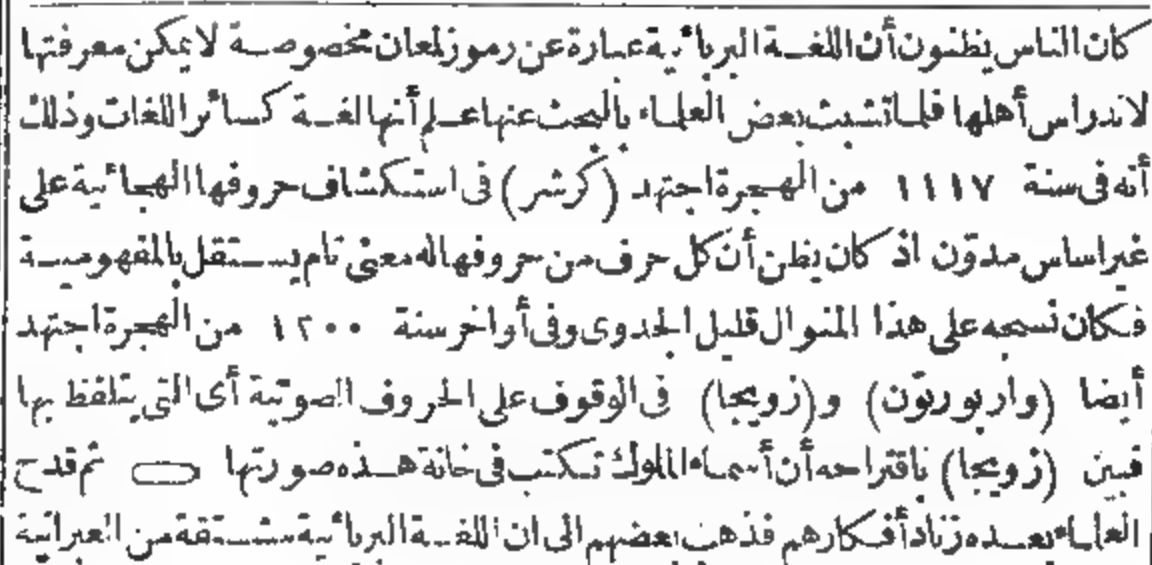 كان الناس يظنون أن اللغة البربائية عبارة عن رموز لمعان مخصوصة لا يمكن معرفتها
لاندراس أهلها فلما تشبث بعض العلماء بالبحث عنها علم أنها لغة كسائر اللغات وذلك
أنه فى سنة ١١١٧ من الهجرة اجتهد (كرشر) فى استكشاف حروفها الهجائية على
غير اساس مدوّن اذ كان يظن أن كل حرف من حروفها له معنى تام يستقل بالمفهومية
فكان نسجه على هذا المنوال قليل الجدوى وفى أواخر سنة ١٢٠٠ من الهجرة اجتهد
أيضا (واربورتون) و(زويجا) فى الوقوف على الحروف الصوتية أى التى يتلفظ بها
فبين (زويجا) باقتراحه أن أسماء الملوك تكتب فى خانة هذه صورتها ثم قدح
العلماء بعده زناد أفكارهم فذهب بعضهم الى ان اللغة البربائية مشتقة من العبرانية